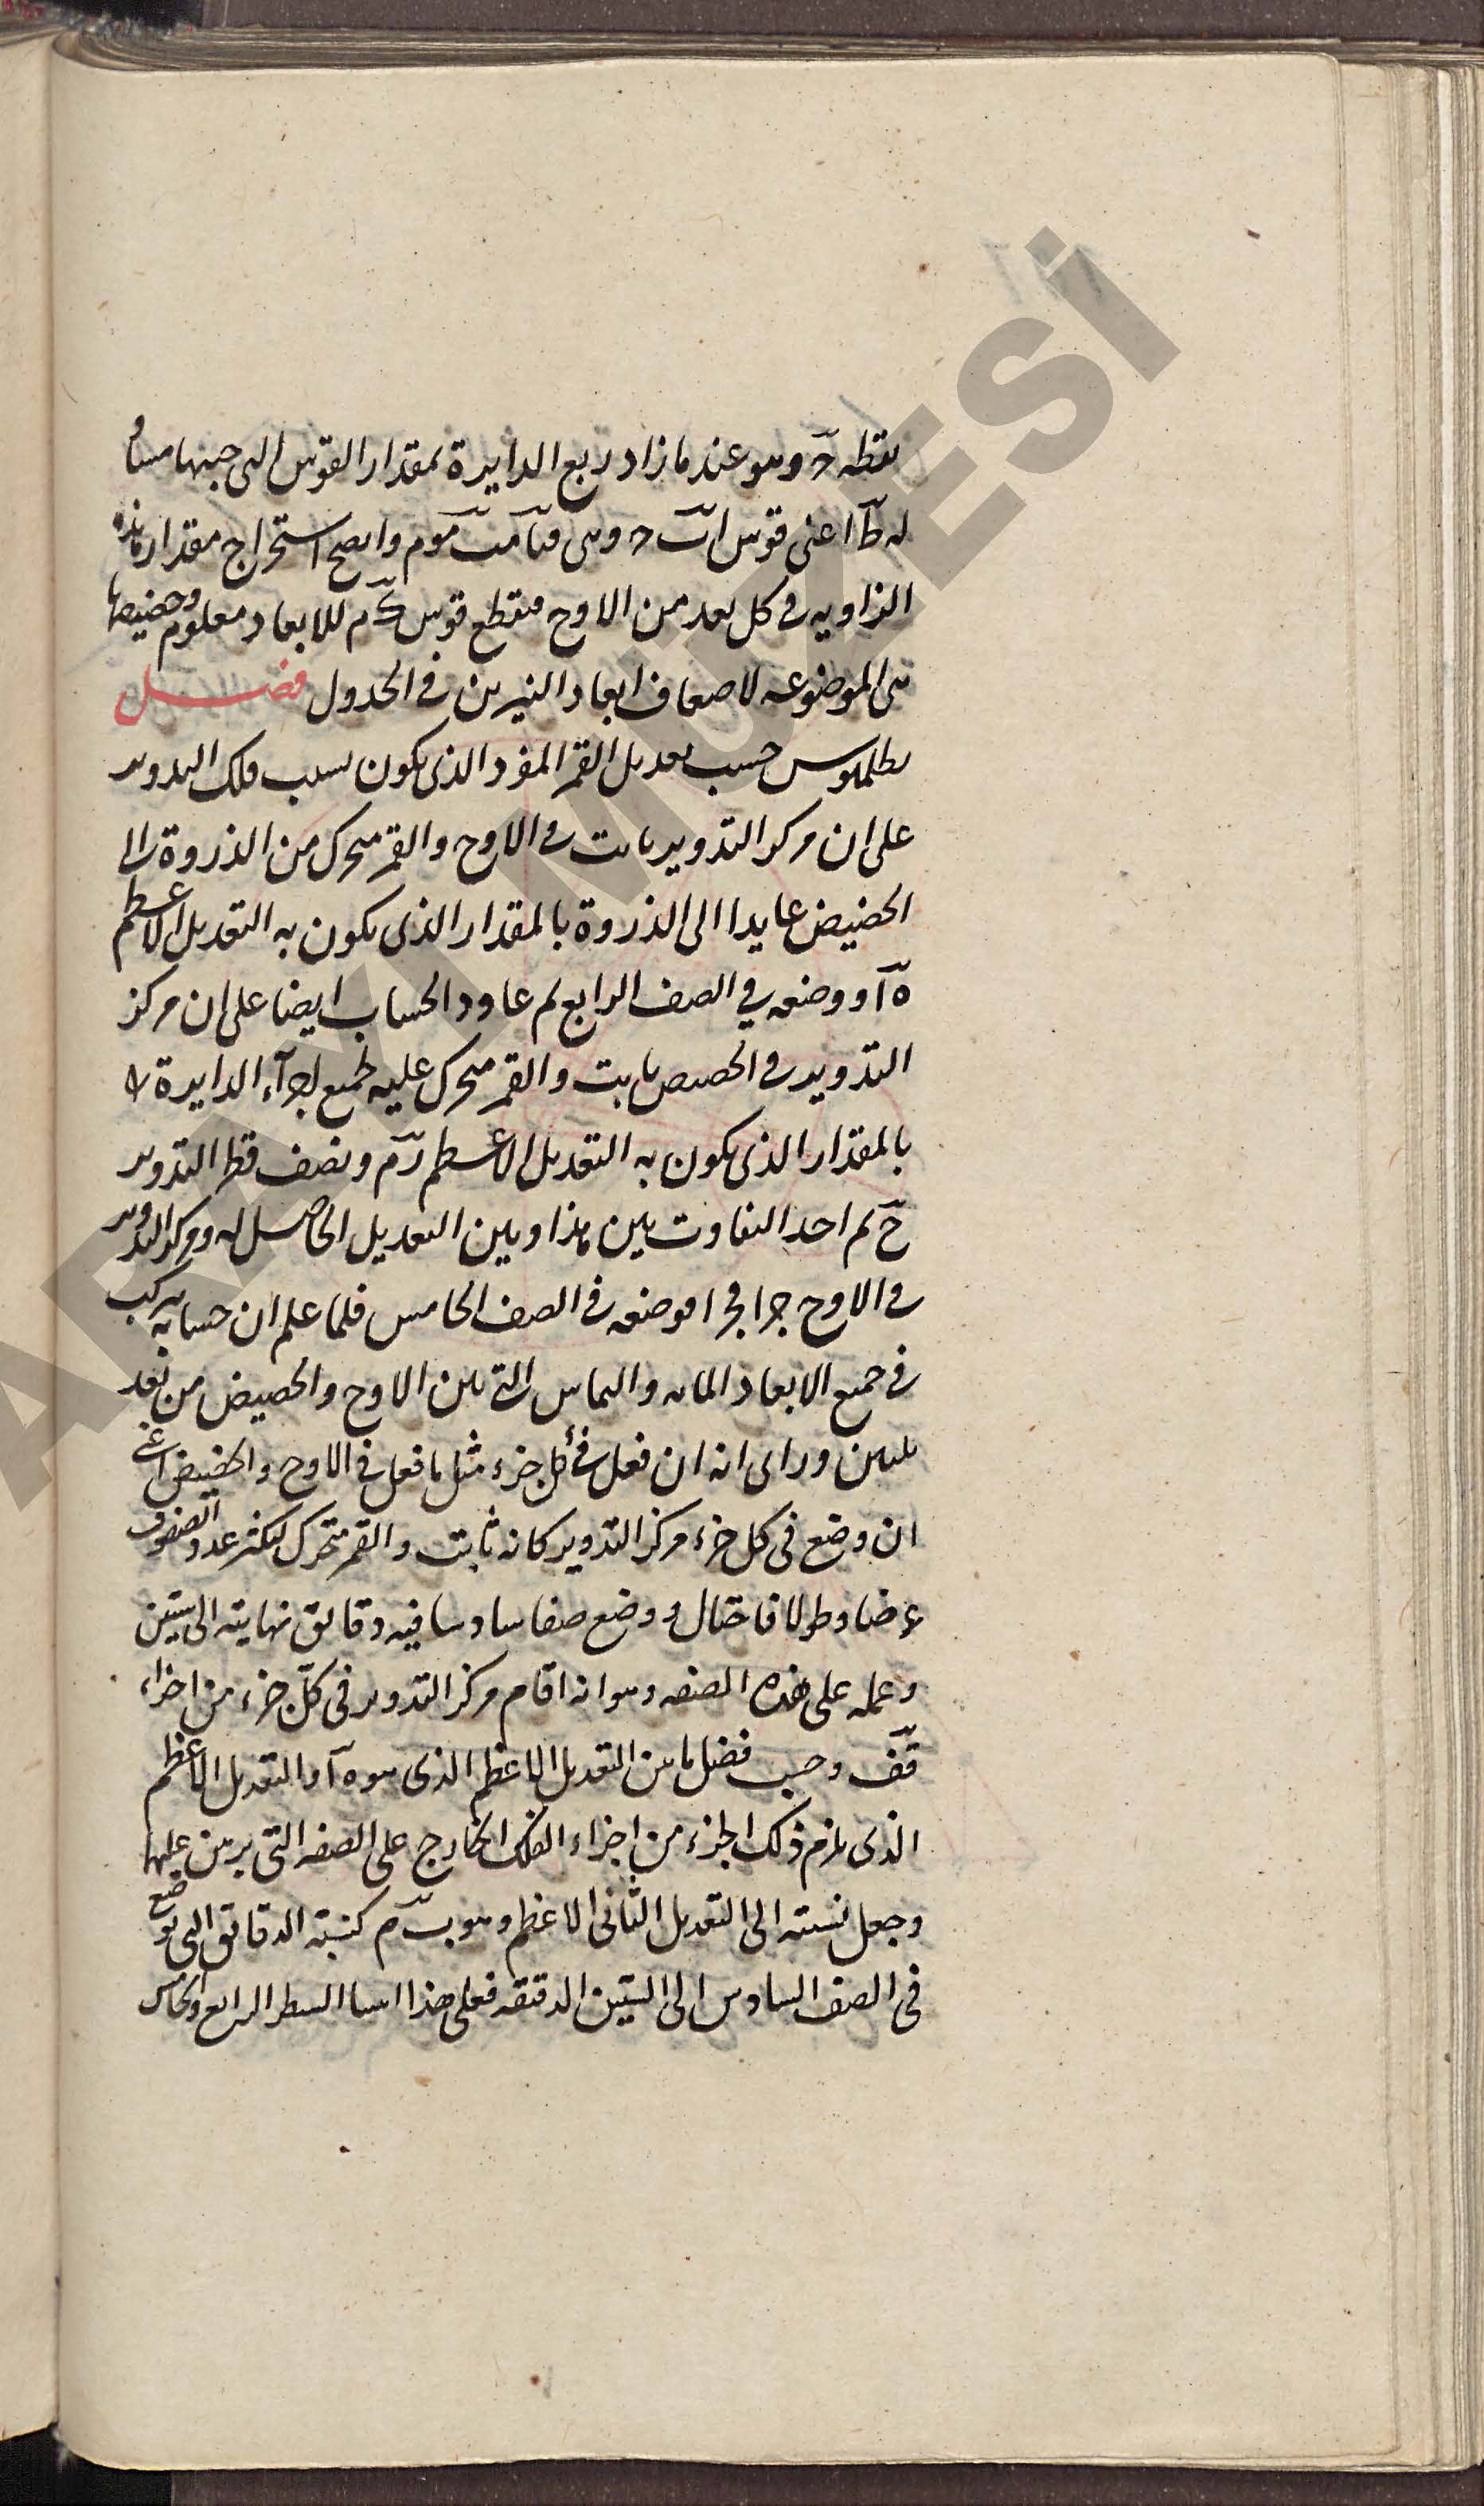 نقطه ح وهو عند ما زاد ربع الدايرة بمقدار القوس التى جيبها مساو
له ط اعنى قوس ا ب ح وهى واىضح استخراج مقدار هذه
الزاويه فى كل بعد من الاوج فىقطع قوس ك م للابعاد معلوم وحضيضها
هى الموضوعه لاضعاف ابعاد النيرين فى الجدول فصل
بطلميوس حسب تعديل القمر المفرد الذى يكون بسبب فلك التدوير
على ان مركز التدوير ثابت فى الاوج والقمر متحرك من الذروة الى
الحضيض عايدا الى الذروة بالمقدار الذى يكون به التعديل الاعظم
ه ا ووضعه فى الصف الرابع ثم عاود الحساب ايضا على ان مركز
التدوير فى الحضيض ثابت والقمر متحرك عليه لجميع اجزآء الدايرة
بالمقدار الذى يكون به التعديل الاعظم ز م ونصف قطر التدوير
ح ثم اخذ التفاوت بين هذا وبين التعديل الحاصل له ومركز التدوير
فى الاوج جزا فجزا فوضعه فى الصف الخامس فلما علم ان حسابه مركب
فى جميع الابعاد المايه والثمانين التى بين الاوج والحضيض من بعد
بعدين وراى انه ان فعل فى كل جزء مثل ما فعل فى الاوج والحضيض اعنى
ان وضع فى كل جزء مركز التدوير كانه ثابت والقمر متحرك لكثر عدد الصفوف
عرضا وطولا فاحتال ووضع صفا سادسا فيه دقائق نهايته الى ستين
وعمله على هذه الصفه وهو انه اقام مركز التدوير فى كل جزء من اجزاء
قف وحسب فضل ما بين التعديل الاعظم الذى هو ه ا والتعديل الاعظم
الذى يلزم ذلك الجزء من اجزاء الفلك الخارج على الصفه التى برهن عليها
وجعل نسبته الى التعديل الثانى الاعظم وهو ب م كنسبة الدقائق التى توضع
فى الصف السادس الى الستين الدقيقه فعلى هذا السطر الرابع والخامس